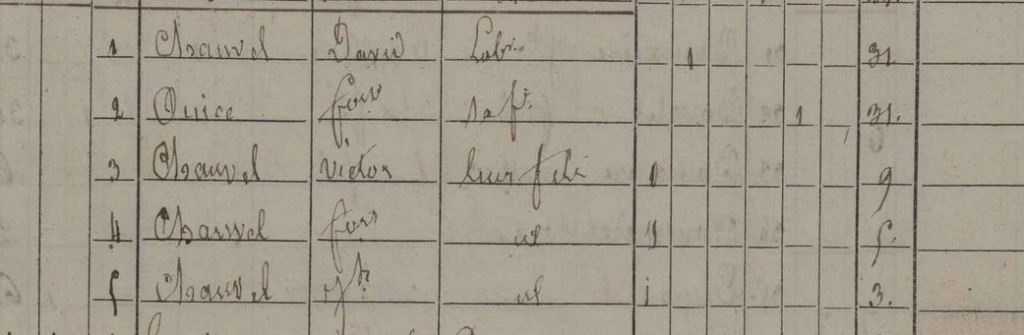 1 Chauvel David Labr. 1 31.
2 Ouice fois sa fe. 1 31.
3 Chauvel Victor leur fils 1 9
4 Chauvel fois id 1 5.
5 Chauvel id 1 3.